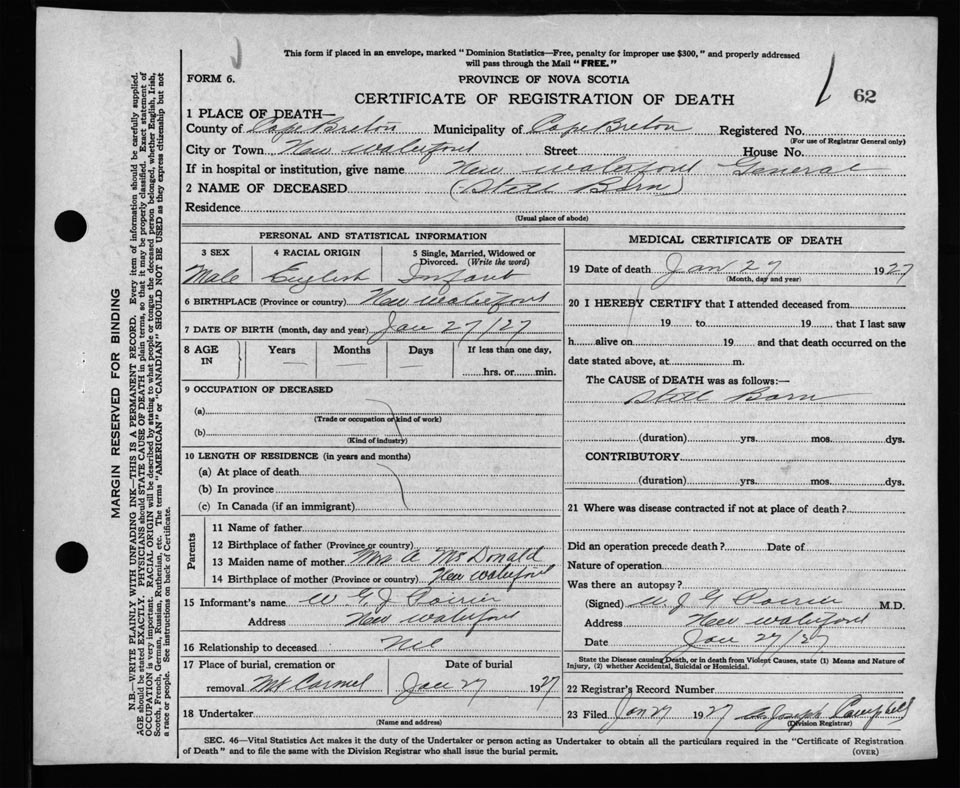 This form if placed in an envelope, marked "Dominion Statistics—Free, penalty for improper use $300," and properly addressed
will pass through the Mail "FREE."
FORM 6.
PROVINCE OF NOVA SCOTIA
62
CERTIFICATE OF REGISTRATION OF DEATH
1 PLACE OF DEATH—
County of Cape Breton Municipality of Cape Breton Registered No.
(For use of Registrar General only)
City or Town New Waterford Street House No.
If in hospital or institution, give name New Waterford General
2 NAME OF DECEASED (Still Born)
Residence
(Usual place of abode)
PERSONAL AND STATISTICAL INFORMATION
3 SEX 4 RACIAL ORIGIN 5 Single, Married, Widowed or
Divorced. (Write the word)
Male English Infant
6 BIRTHPLACE (Province or country) New Waterford
7 DATE OF BIRTH (month, day and year) Jan 27/27
8 AGE IN Years Months Days If less than one day,
— — — hrs. or min.
9 OCCUPATION OF DECEASED
(a)
(Trade or occupation or kind of work)
(b)
(Kind of industry)
10 LENGTH OF RESIDENCE (in years and months)
(a) At place of death
(b) In province
(c) In Canada (if an immigrant)
Parents
11 Name of father
12 Birthplace of father (Province or country)
13 Maiden name of mother Mrs A McDonald
14 Birthplace of mother (Province or country) New Waterford
15 Informant's name W G J Poirier
Address New Waterford
16 Relationship to deceased Nil
17 Place of burial, cremation or Date of burial
removal Mt Carmel Jan 27 1927
18 Undertaker
(Name and address)
MEDICAL CERTIFICATE OF DEATH
19 Date of death Jan 27 1927
(Month, day and year)
20 I HEREBY CERTIFY that I attended deceased from
19 to 19 that I last saw
h alive on 19 and that death occurred on the
date stated above, at m.
The CAUSE of DEATH was as follows:—
Still Born
(duration) yrs. mos. dys.
CONTRIBUTORY
(duration) yrs. mos. dys.
21 Where was disease contracted if not at place of death?
Did an operation precede death? Date of
Nature of operation
Was there an autopsy?
(Signed) W J G Poirier M.D.
Address New Waterford
Date Jan 27/27
State the Disease causing Death, or in death from Violent Causes, state (1) Means and Nature of
Injury, (2) whether Accidental, Suicidal or Homicidal.
22 Registrar's Record Number
23 Filed Jan 27 1927 Joseph Campbell
(Division Registrar)
SEC. 46—Vital Statistics Act makes it the duty of the Undertaker or person acting as Undertaker to obtain all the particulars required in the "Certificate of Registration
of Death" and to file the same with the Division Registrar who shall issue the burial permit.
(OVER)
MARGIN RESERVED FOR BINDING
N.B.—WRITE PLAINLY WITH UNFADING INK—THIS IS A PERMANENT RECORD. Every item of information should be carefully supplied.
AGE should be stated EXACTLY. PHYSICIANS should STATE CAUSE OF DEATH in plain terms, so that it may be properly classified. Exact statement of
OCCUPATION is very important. RACIAL ORIGIN will be described by stating to what people or tongue the deceased person belonged, whether English, Irish,
Scotch, French, German, Russian, Ruthenian, etc. The terms "AMERICAN" or "CANADIAN" SHOULD NOT BE USED as they express citizenship but not
a race or people. See instructions on back of Certificate.